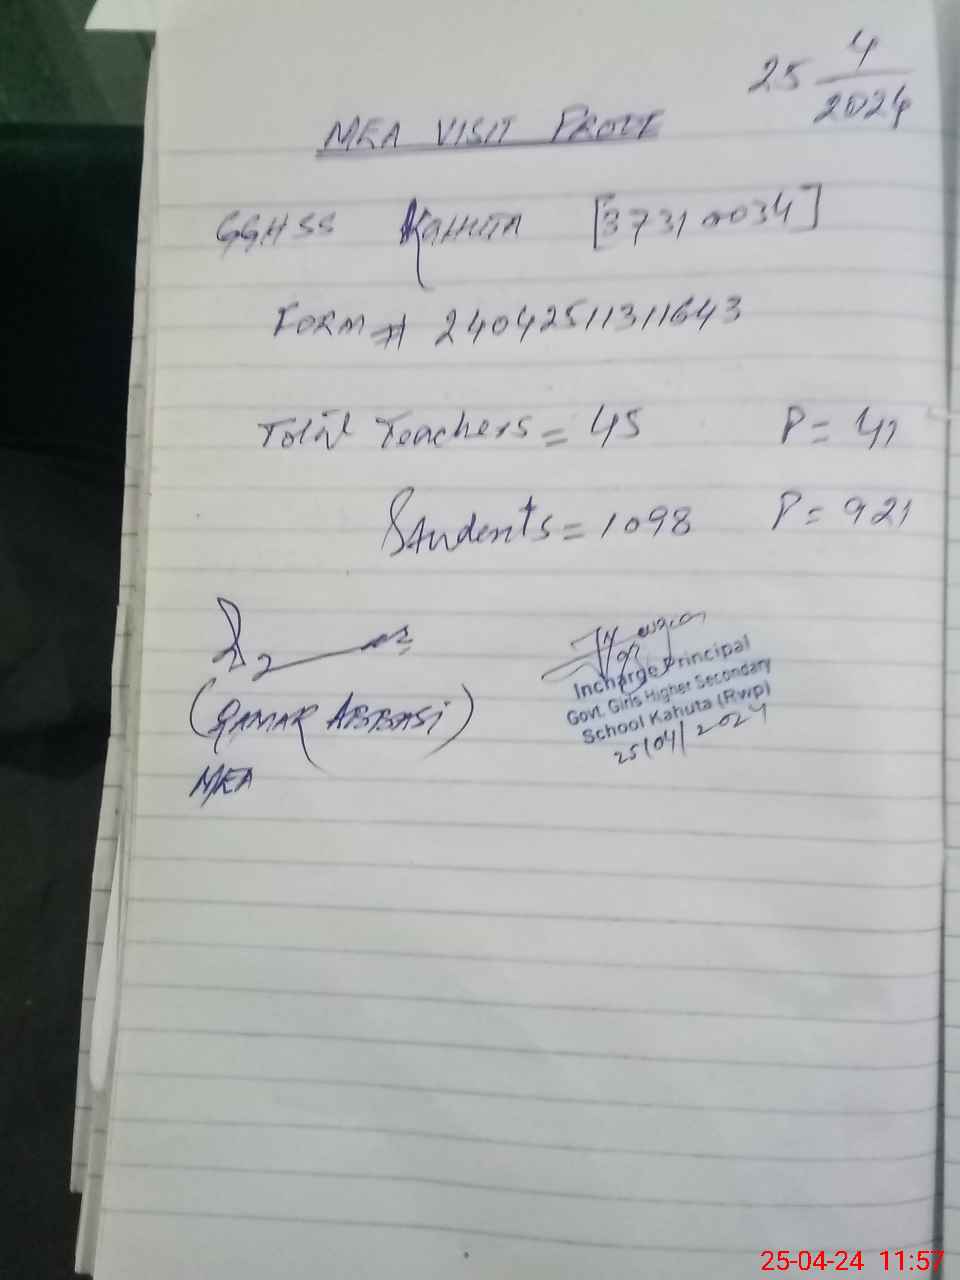 25 4/2024
MEA VISIT PROOF
GGHSS KAHUTA [37310034]
FORM # 24042511311643
Total Teachers = 45 P = 41
Students = 1098 P = 921
(QAMAR ABBASI)
MEA
Incharge Principal
Govt. Girls Higher Secondary
School Kahuta (Rwp)
25/04/2024
25-04-24 11:57